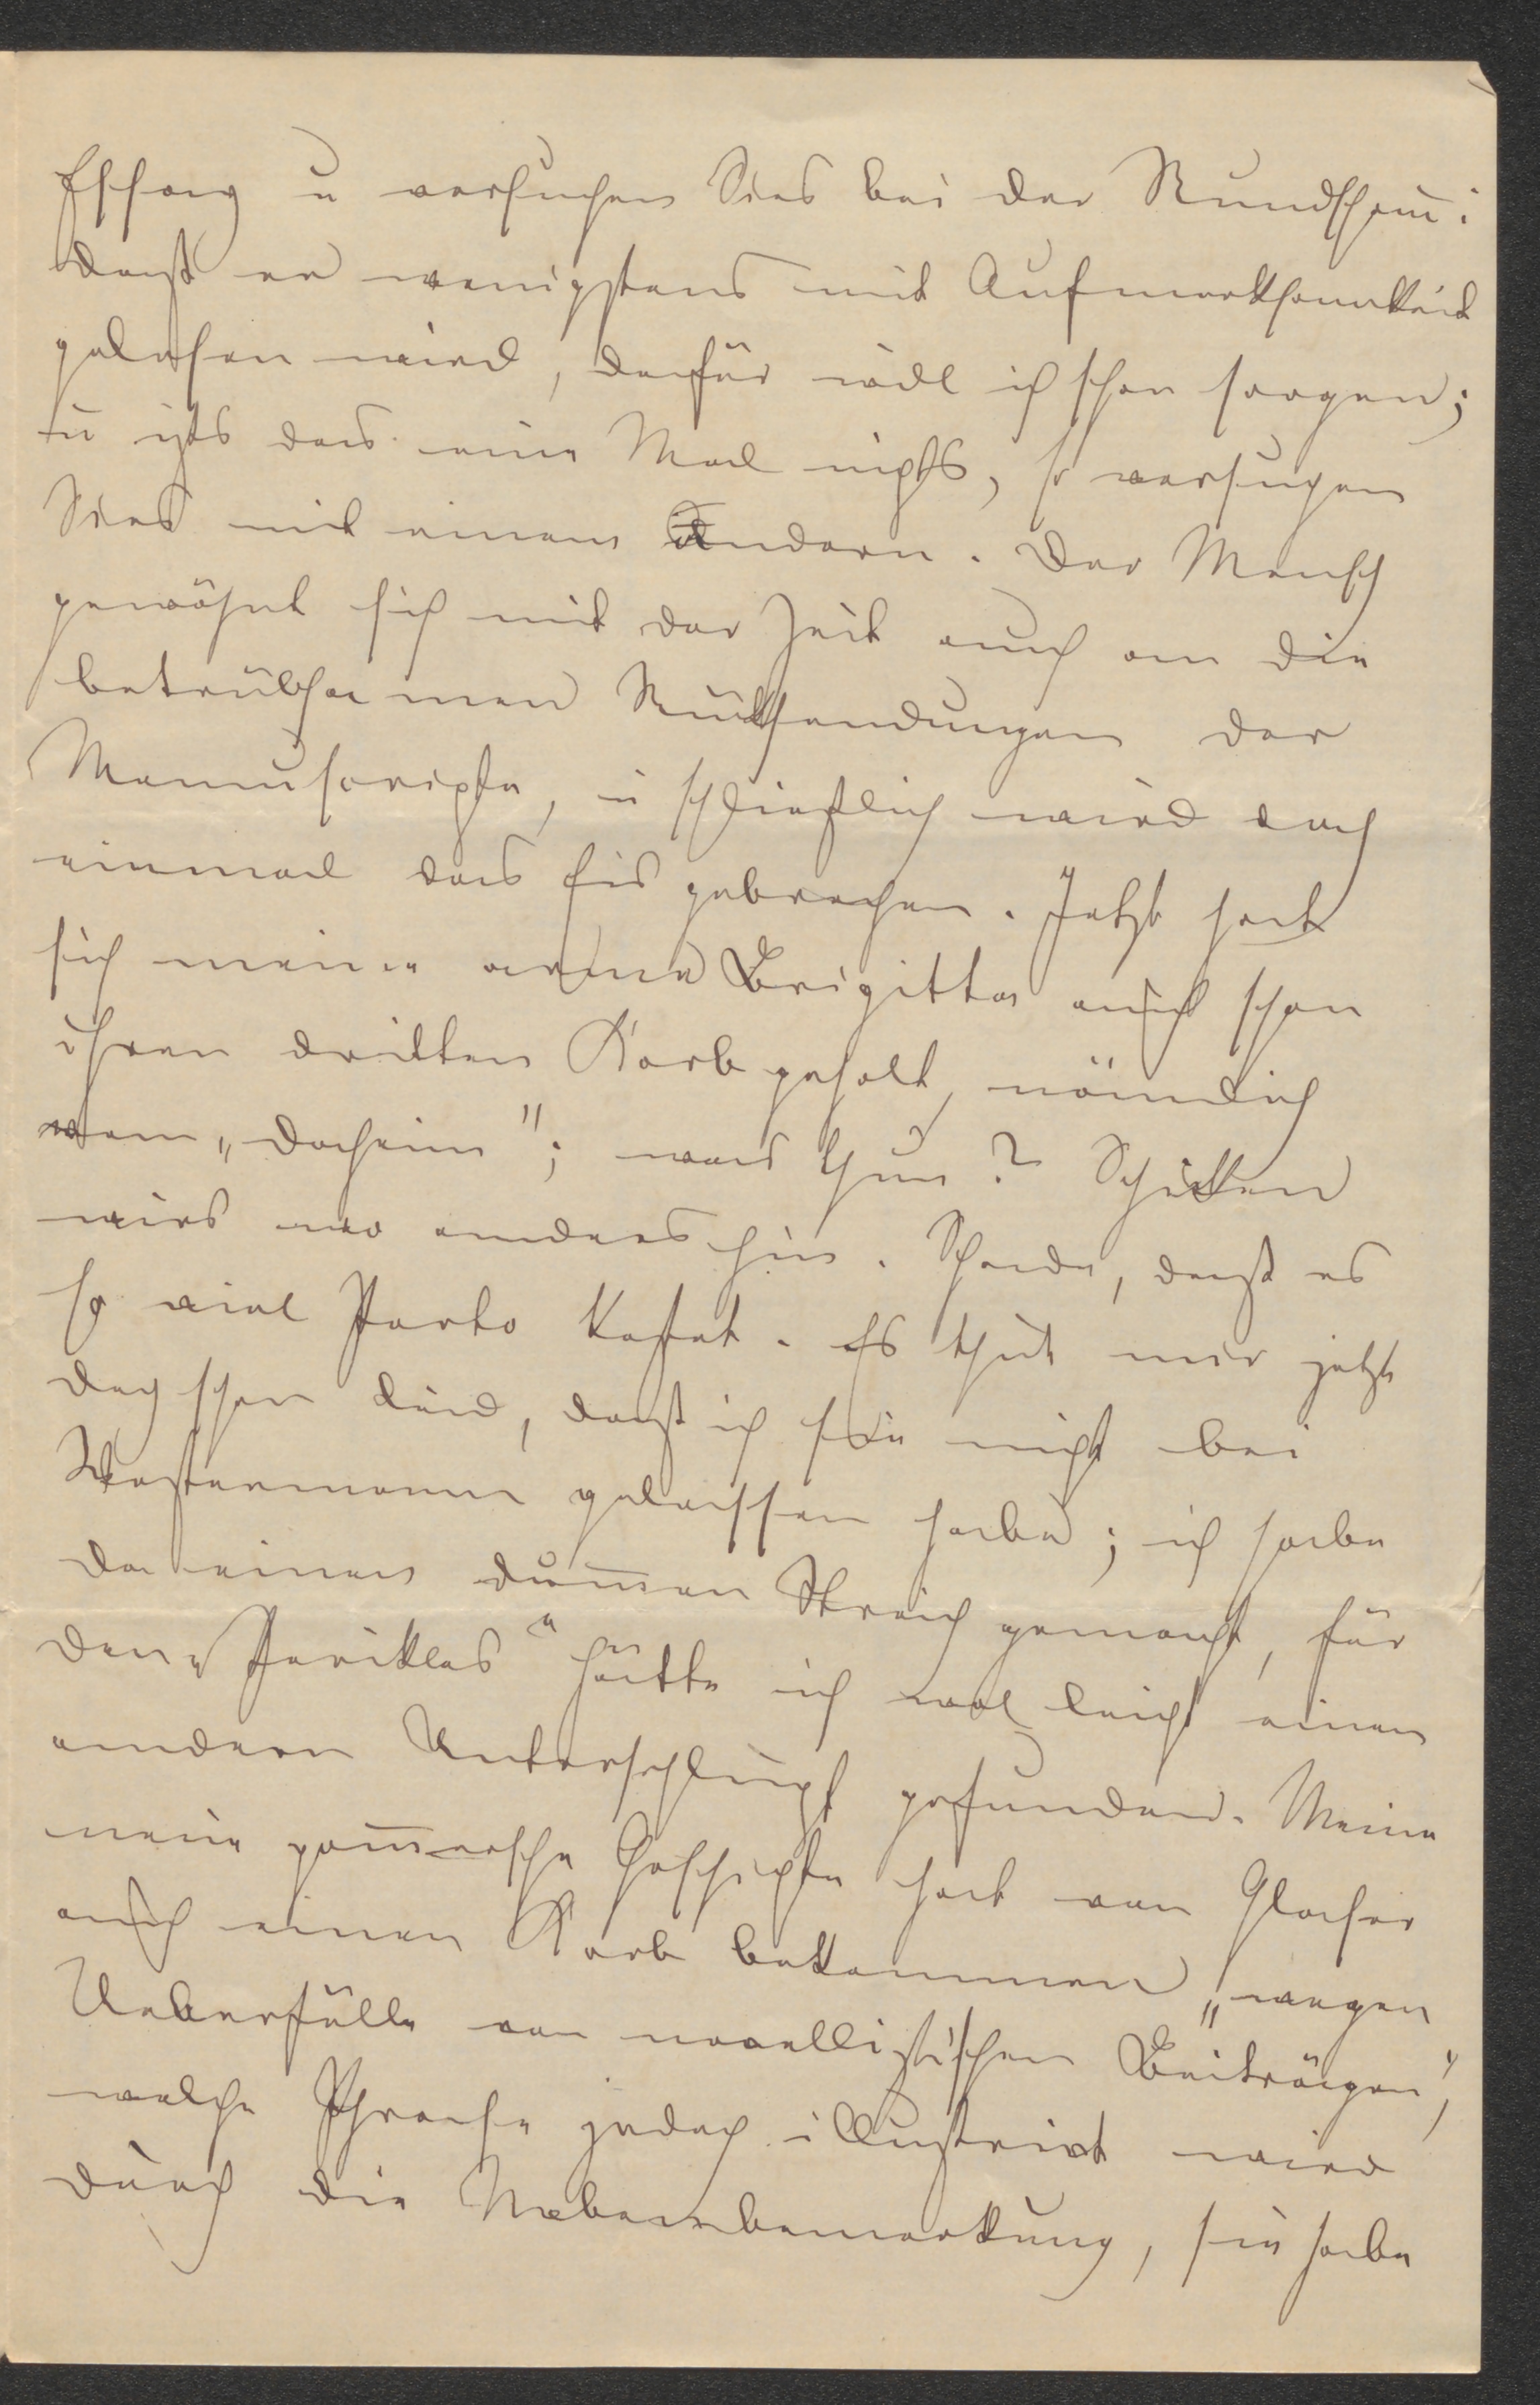 Essay u versuchen Sies bei der Rundschau:
daß er wenigstens mit Aufmerksamkeit
gelesen wird, dafür will ich schon sorgen;
u ists das eine Mal nichts, so versuchen
Sies mit einem andern. Der Mensch
gewöhnt sich mit der Zeit auch an die
betrübsamen Rücksendungen der
Manuscripte, u schließlich wird doch
einmal das Eis gebrochen. Jetzt hat
sich meine arme Brigitta auch schon
ihren dritten Korb geholt, nämlich
vom „Daheim"; was thun? Schicken
wirs wo anders hin. Schade, daß es
so viel Porto kostet. Es thut mir jetzt
doch schon leid, daß ich sie nicht bei
Westermann gelassen habe; ich habe
da einen dum̅en Streich gemacht, für
den „Perikles" hätte ich wol leicht einen
andern Unterschlupf gefunden. Meine
neue pom̅ersche Geschichte hat von Glaser
auch einen Korb bekommen „wegen
Ueberfülle von novellistischen Beiträgen",
welche Phrase jedoch illustrirt wird
durch die Nebenbemerkung, sie habe